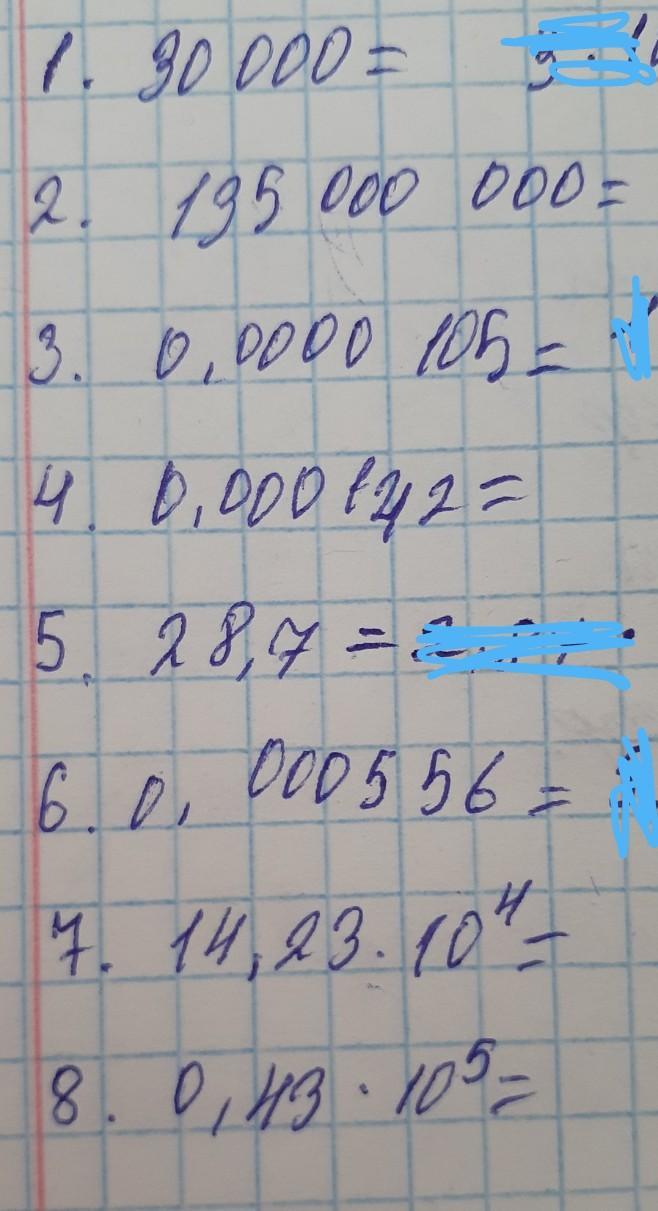 1. 30 000 =
2. 195 000 000 =
3. 0,0000 105 =
4. 0,000142 =
5. 28,7 =
6. 0,000556 =
7. 14,23 · 10⁴ =
8. 0,43 · 10⁵ =